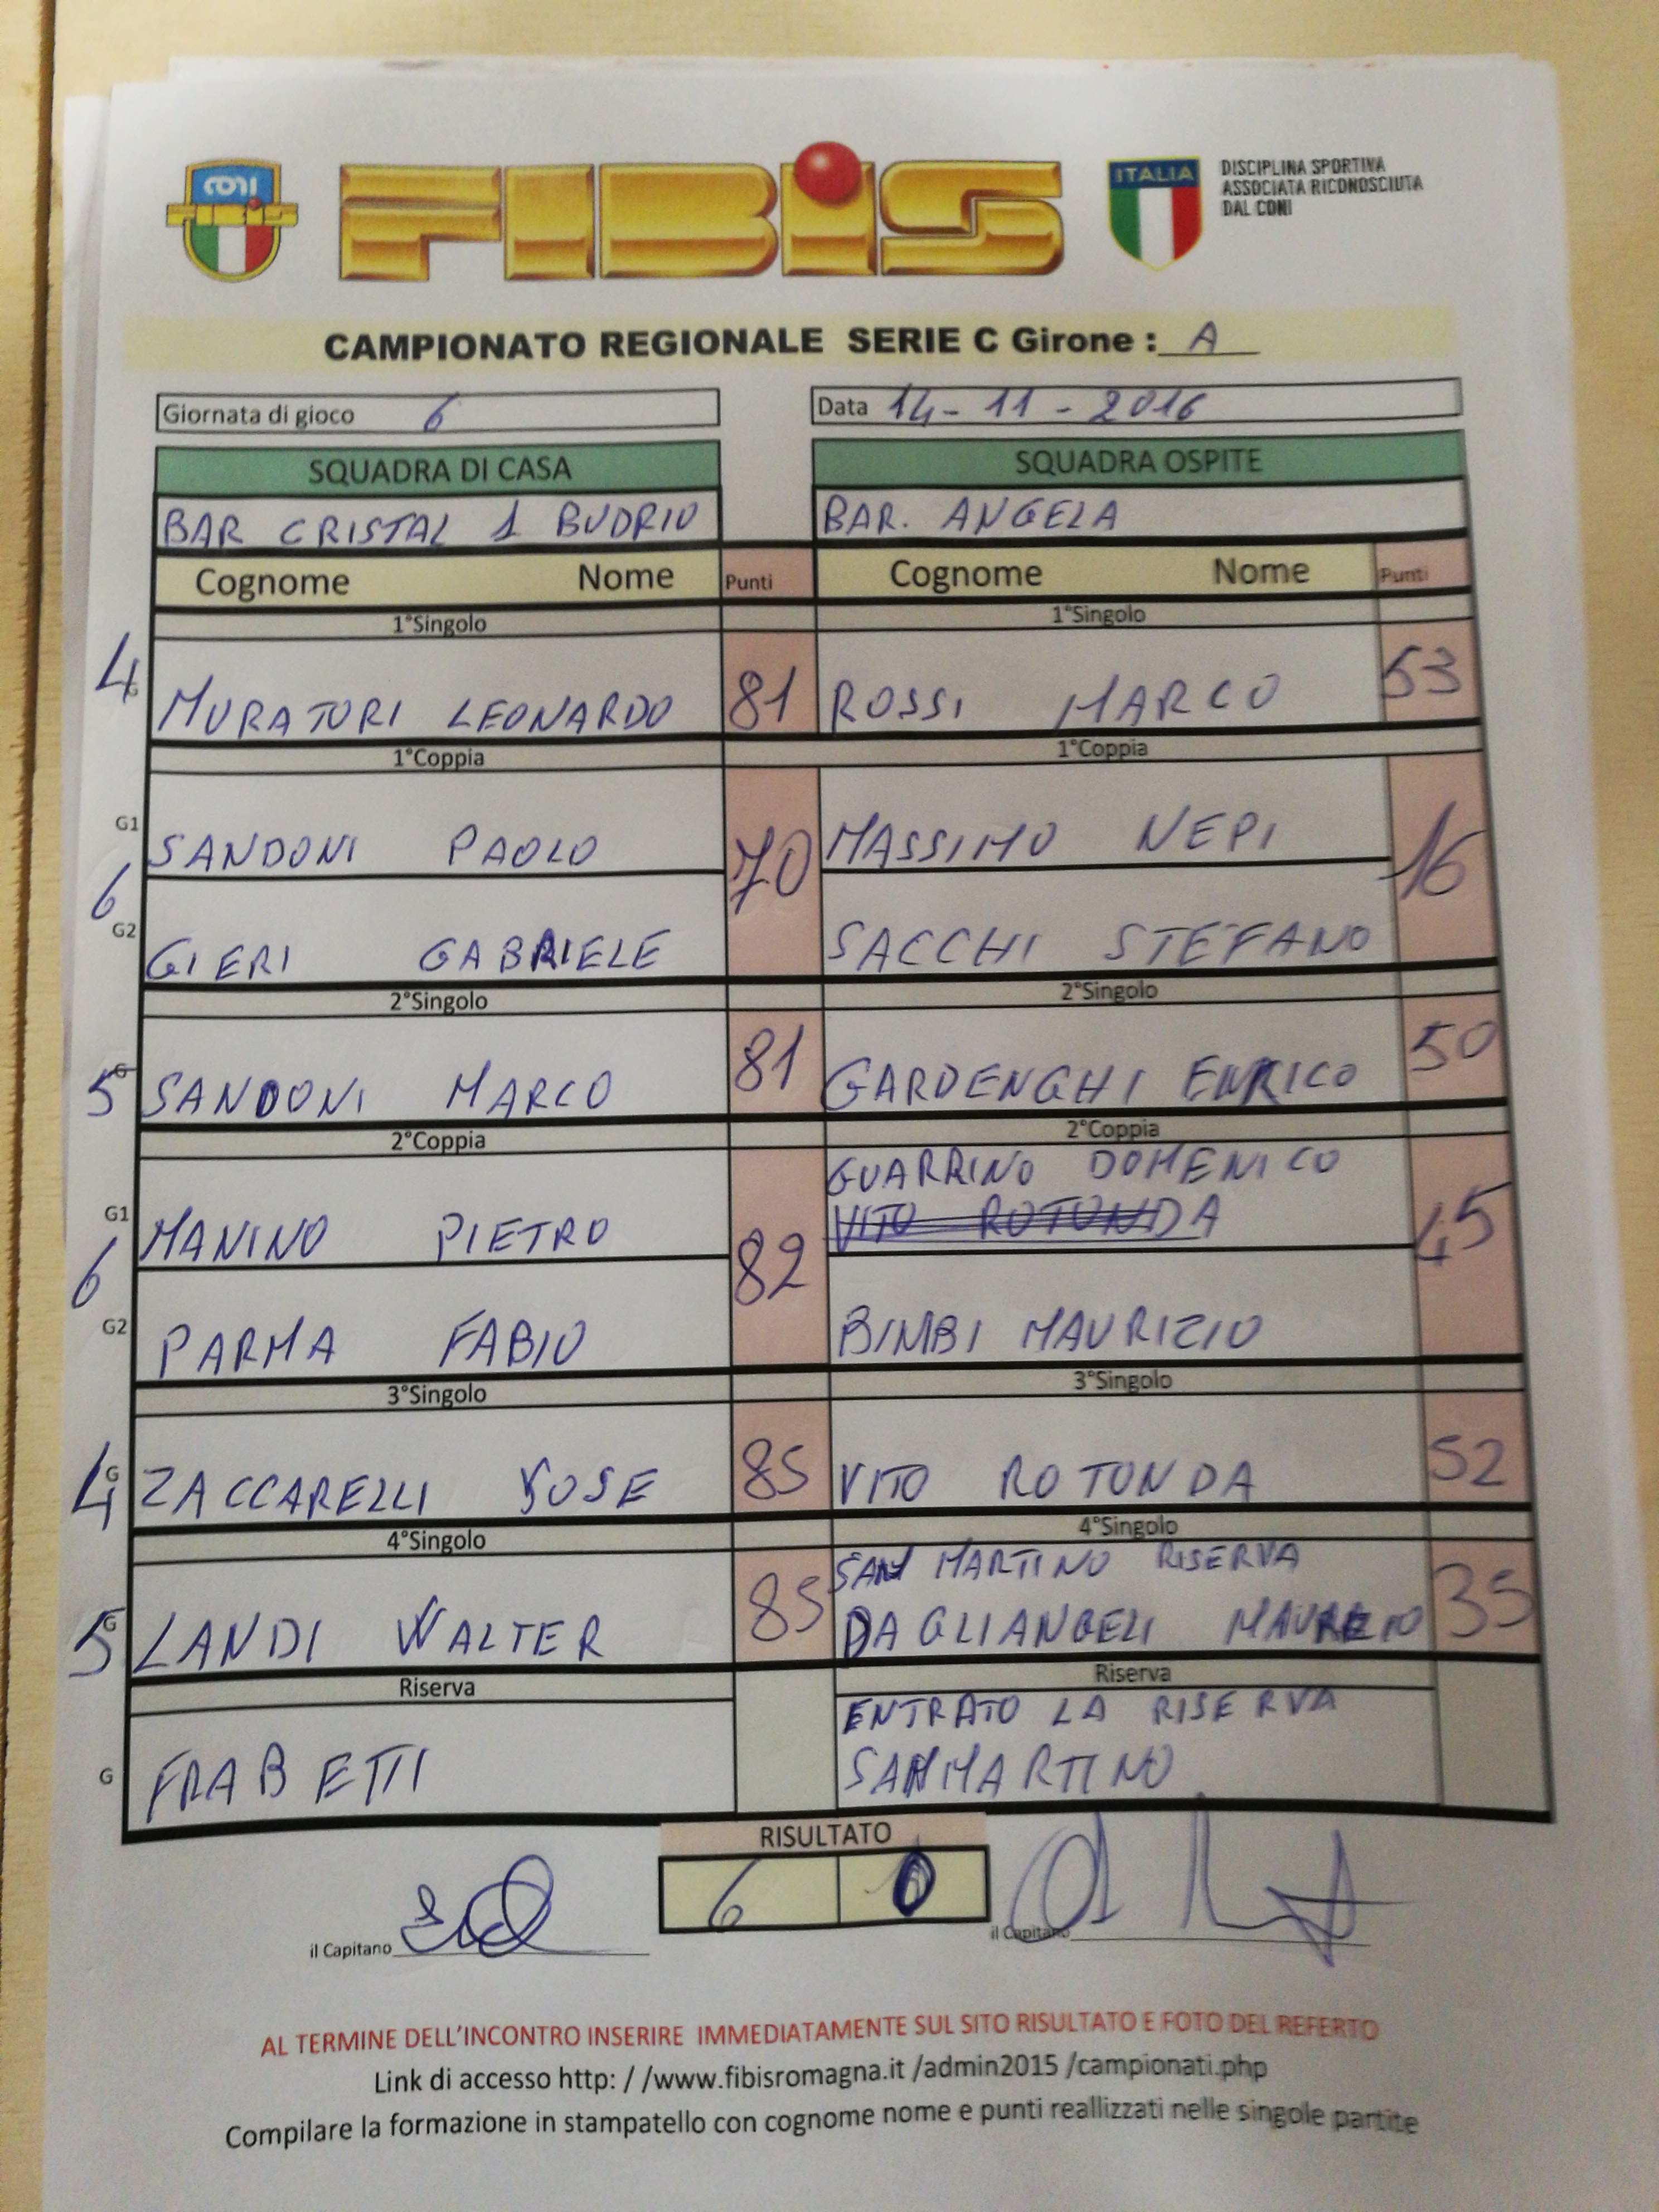 CONI
FIBIS
ITALIA
DISCIPLINA SPORTIVA
ASSOCIATA RICONOSCIUTA
DAL CONI
CAMPIONATO REGIONALE SERIE C Girone : A
Giornata di gioco 6 Data 14-11-2016
SQUADRA DI CASA SQUADRA OSPITE
BAR CRISTAL 1 BUDRIO BAR. ANGELA
Cognome Nome Punti Cognome Nome Punti
1°Singolo 1°Singolo
4 G MURATORI LEONARDO 81 ROSSI MARCO 53
1°Coppia 1°Coppia
G1 SANDONI PAOLO MASSIMO NEPI
6 70 16
G2 GIERI GABRIELE SACCHI STEFANO
2°Singolo 2°Singolo
5 G SANDONI MARCO 81 GARDENGHI ENRICO 50
2°Coppia 2°Coppia
GUARRINO DOMENICO
G1 MANINO PIETRO VITO ROTONDA
6 82 45
G2 PARMA FABIO BIMBI MAURIZIO
3°Singolo 3°Singolo
4 G ZACCARELLI JOSE 85 VITO ROTONDA 52
4°Singolo 4°Singolo
SAN MARTINO RISERVA
5 G LANDI WALTER 85 DAGLIANGELI 35
Riserva Riserva
ENTRATO LA RISERVA
G FRABETTI SANMARTINO
RISULTATO
6 0
il Capitano il Capitano
AL TERMINE DELL'INCONTRO INSERIRE IMMEDIATAMENTE SUL SITO RISULTATO E FOTO DEL REFERTO
Link di accesso http: / /www.fibisromagna.it /admin2015 /campionati.php
Compilare la formazione in stampatello con cognome nome e punti reallizzati nelle singole partite